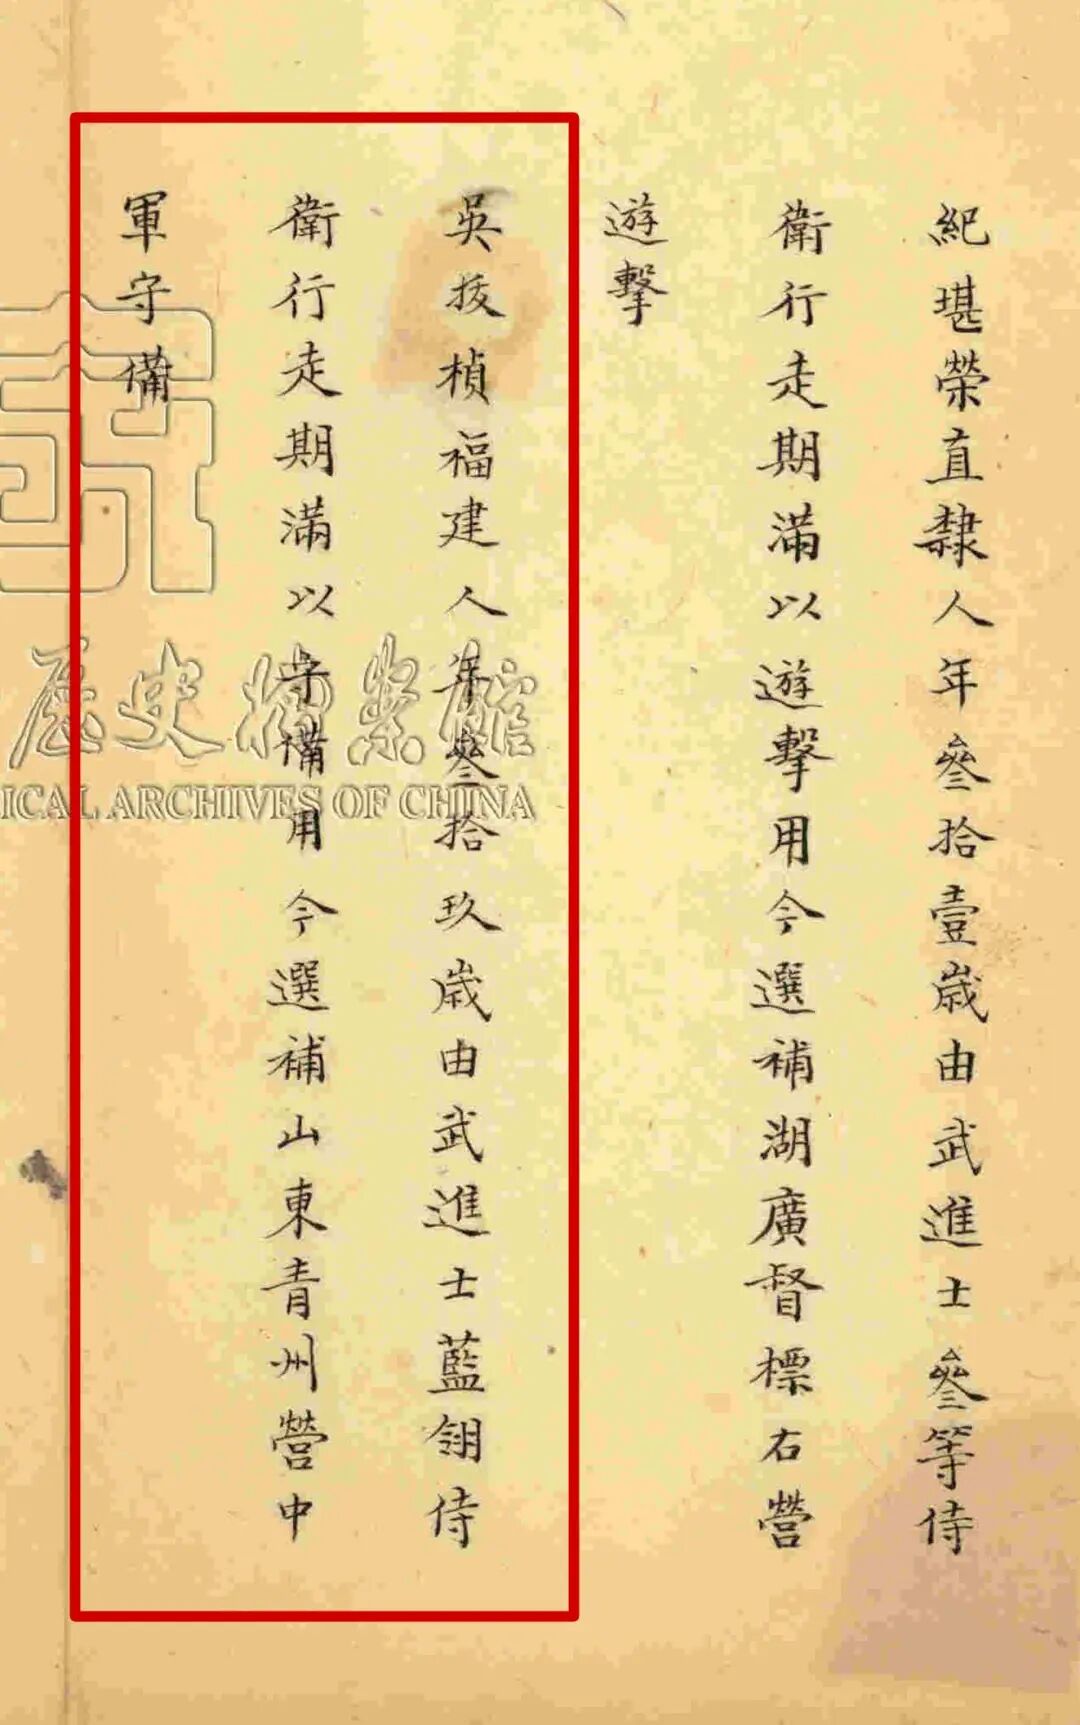 紀堪榮直隸人年叄拾壹歲由武進士叄等侍
衛行走期滿以遊擊用今選補湖廣督標右營
遊擊
吳拔楨福建人年叄拾玖歲由武進士藍翎侍
衛行走期滿以守備用今選補山東青州營中
軍守備
歷史檔案館
ICAL ARCHIVES OF CHINA